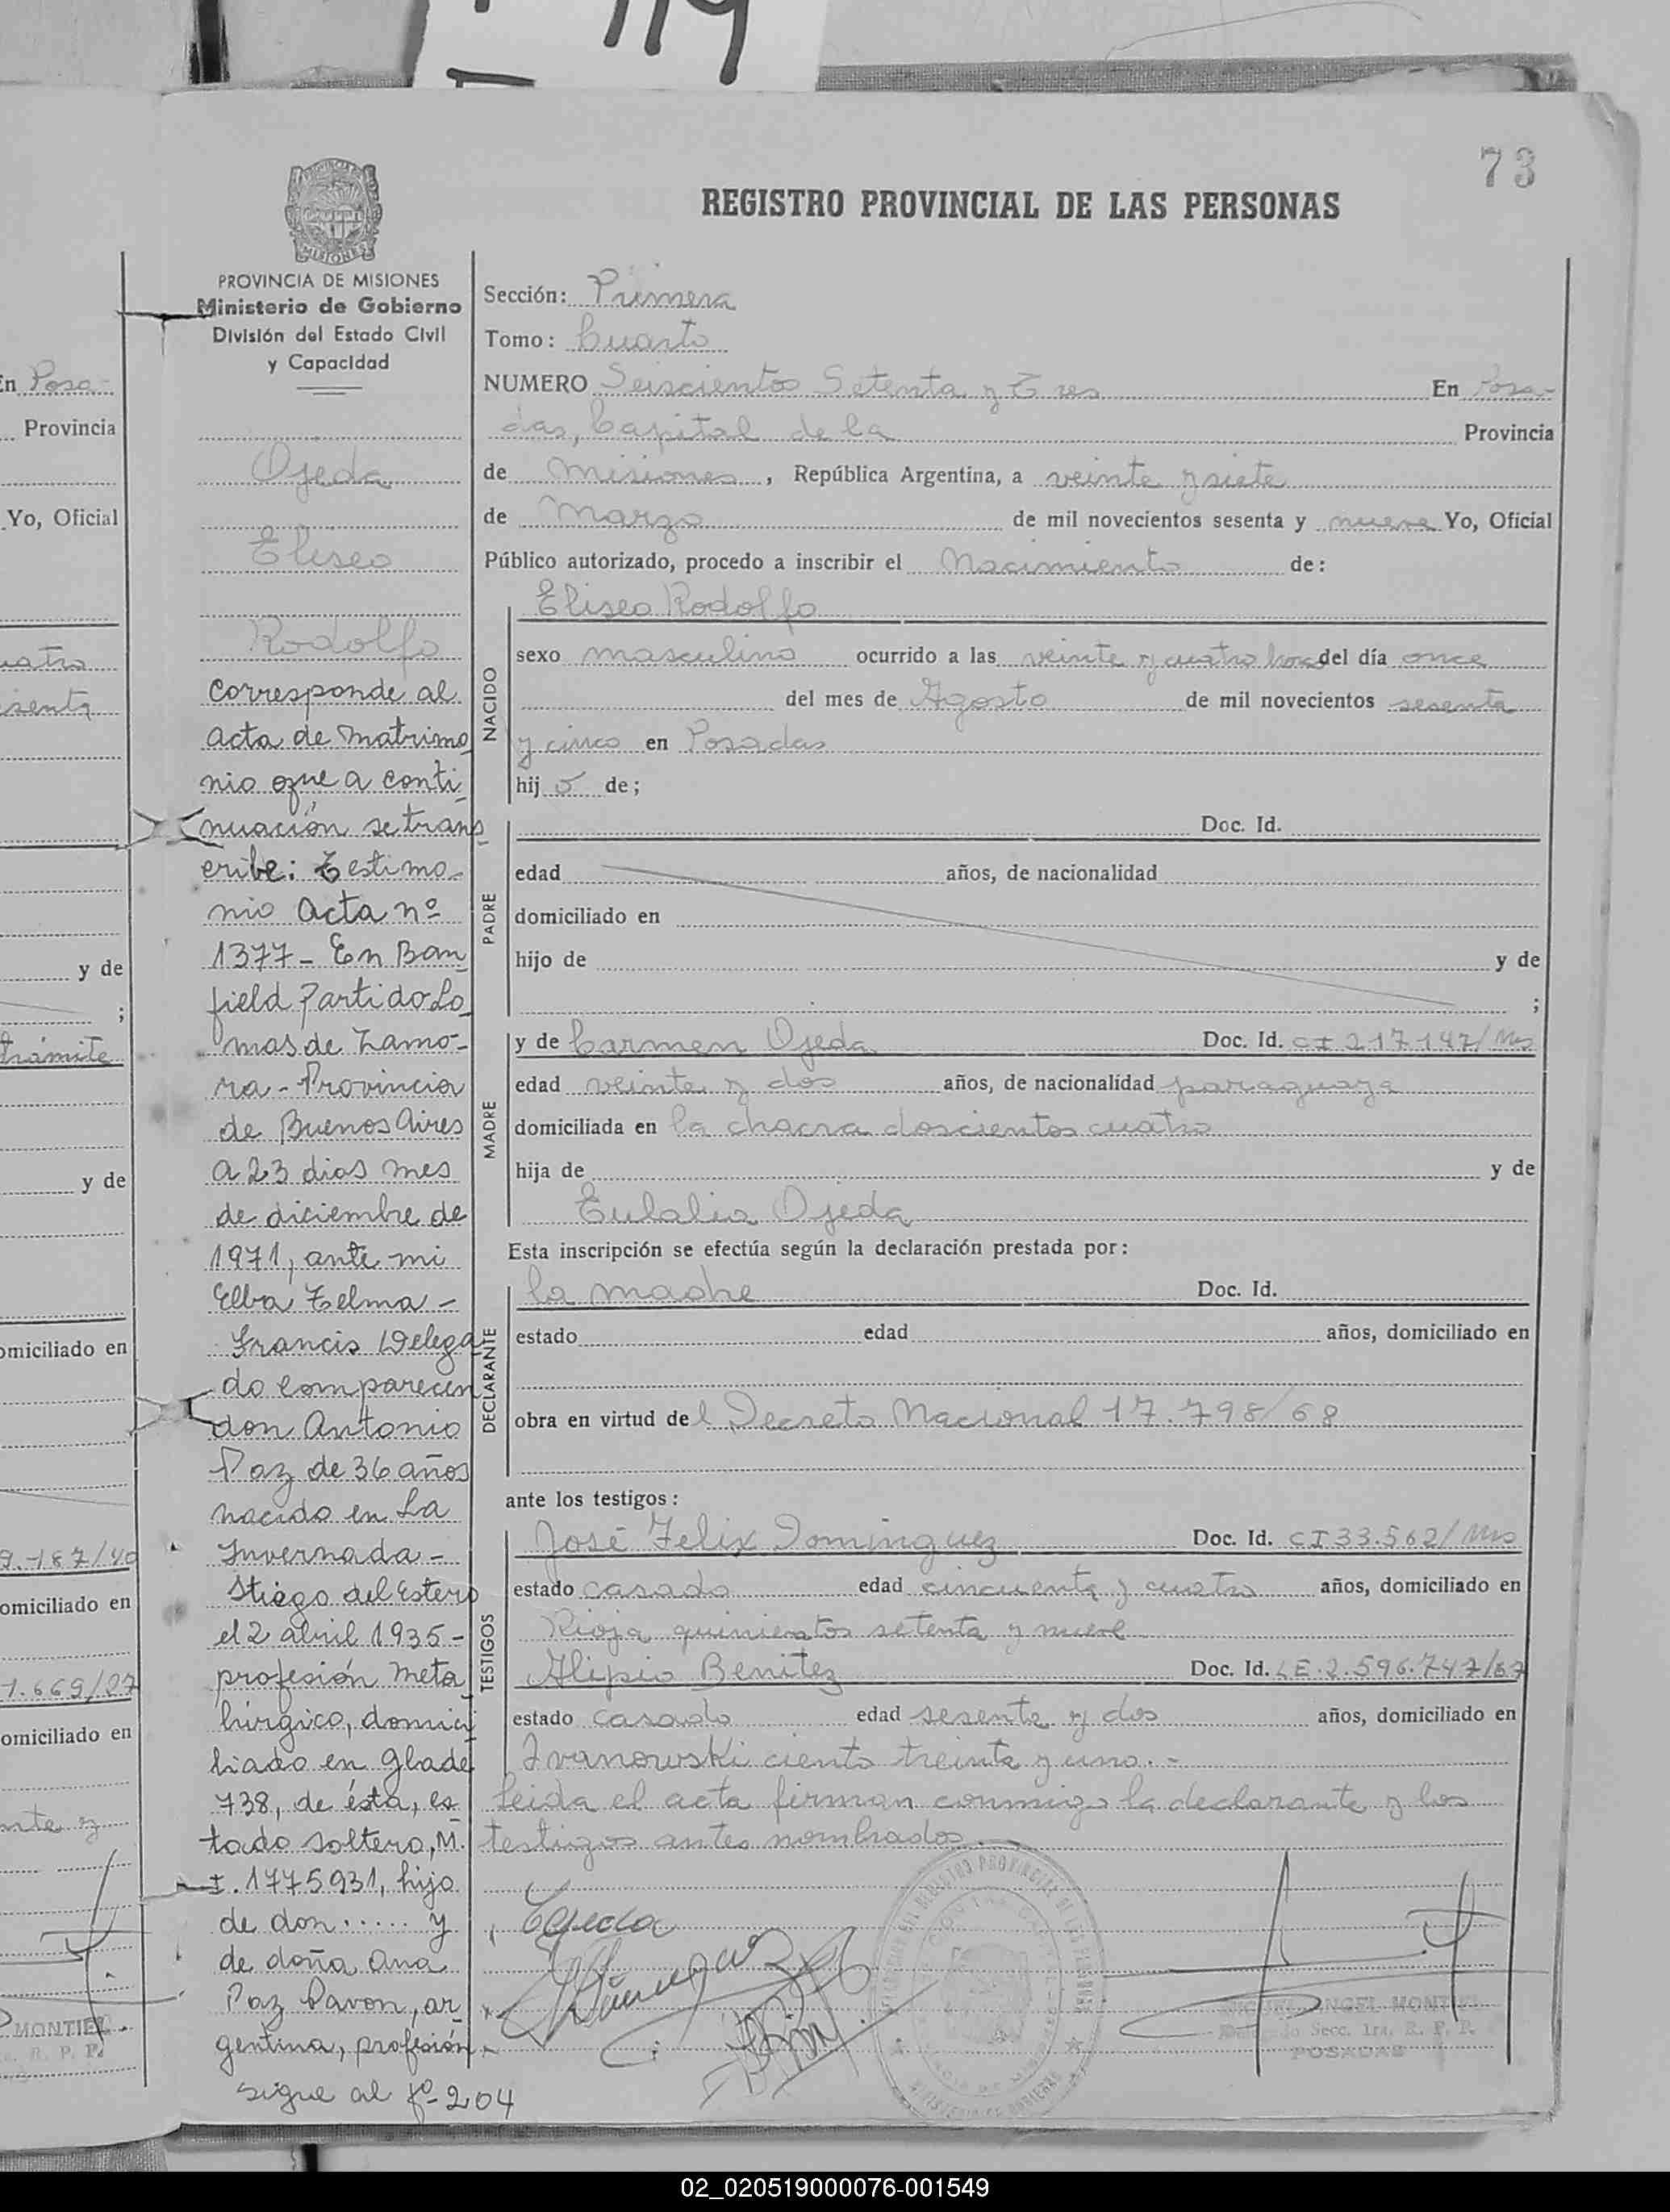 73
REGISTRO PROVINCIAL DE LAS PERSONAS
PROVINCIA DE MISIONES
Ministerio de Gobierno
División del Estado Civil
y Capacidad
Ojeda
Eliseo
Rodolfo
Corresponde al
acta de Matrimo
nio que a conti
nuación se trans
cribe: Testimo
nio Acta nº
1377 - En Ban
field Partido Lo
mas de Zamo-
ra - Provincia
de Buenos Aires
a 23 dias mes
de diciembre de
1971, ante mi
Elba Zelma -
Francis Delega
do comparecen
don Antonio
Paz de 36 años
nacido en La
Invernada -
Stiago del Estero
el 2 abril 1935 -
profesión meta
lúrgico, domici
liado en Glade
738, de ésta, es
tado soltero, M.
I. 1775931, hijo
de don ..... y
de doña Ana
Paz Pavon, ar
gentina, profesión
sigue al fº 204
Sección: Primera
Tomo: Cuarto
NUMERO Seiscientos Setenta y Tres En Posa-
das, Capital de la Provincia
de Misiones, República Argentina, a veinte y siete
de Marzo de mil novecientos sesenta y nueve Yo, Oficial
Público autorizado, procedo a inscribir el Nacimiento de:
NACIDO
Eliseo Rodolfo
sexo masculino ocurrido a las veinte y cuatro horas del día once
del mes de Agosto de mil novecientos sesenta
y cinco en Posadas
hij o de;
PADRE
Doc. Id.
edad años, de nacionalidad
domiciliado en
hijo de y de
;
MADRE
y de Carmen Ojeda Doc. Id. CI 217.147/Ms
edad veinte y dos años, de nacionalidad paraguaya
domiciliada en la chacra doscientos cuatro
hija de y de
Eulalia Ojeda
Esta inscripción se efectúa según la declaración prestada por:
DECLARANTE
la madre Doc. Id.
estado edad años, domiciliado en
obra en virtud del Decreto Nacional 17.798/68
ante los testigos:
TESTIGOS
José Felix Dominguez Doc. Id. CI 33.562/Ms
estado casado edad cincuenta y cuatro años, domiciliado en
Rioja quinientos setenta y nueve
Alipio Benitez Doc. Id. LE.2.596.747/67
estado casado edad sesente y dos años, domiciliado en
Ivanowski ciento treinta y uno. -
leida el acta firman conmigo la declarante y los
testigos antes nombrados. -
MIGUEL ANGEL MONTIEL
Delegado Secc. 1ra. R. P. P.
POSADAS
En Posa-
Provincia
Yo, Oficial
y de
;
trámite
y de
omiciliado en
omiciliado en
omiciliado en
MONTIEL
R. P. P.
02_020519000076-001549